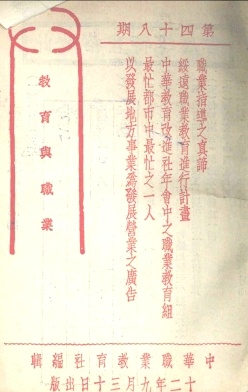 第四十八期
職業指導之真諦
綏遠職業教育進行計畫
中華教育改進社年會中之職業教育組
最忙都市中最忙之一人
以發展地方事業為發展營業之廣告
教育與職業
中華職業教育社編輯
十二年九月三十日出版